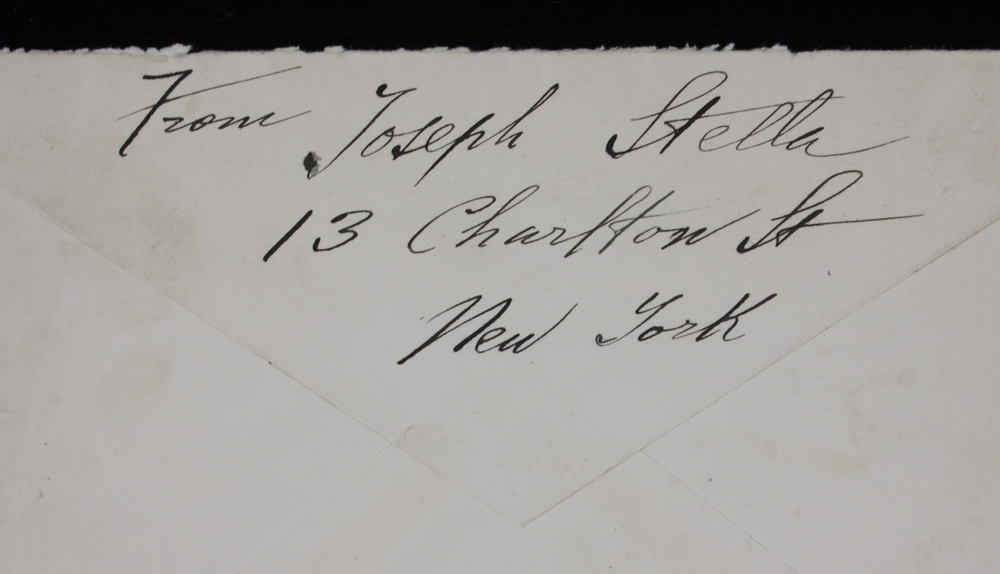 From Joseph Stella
13 Charlton St
New York